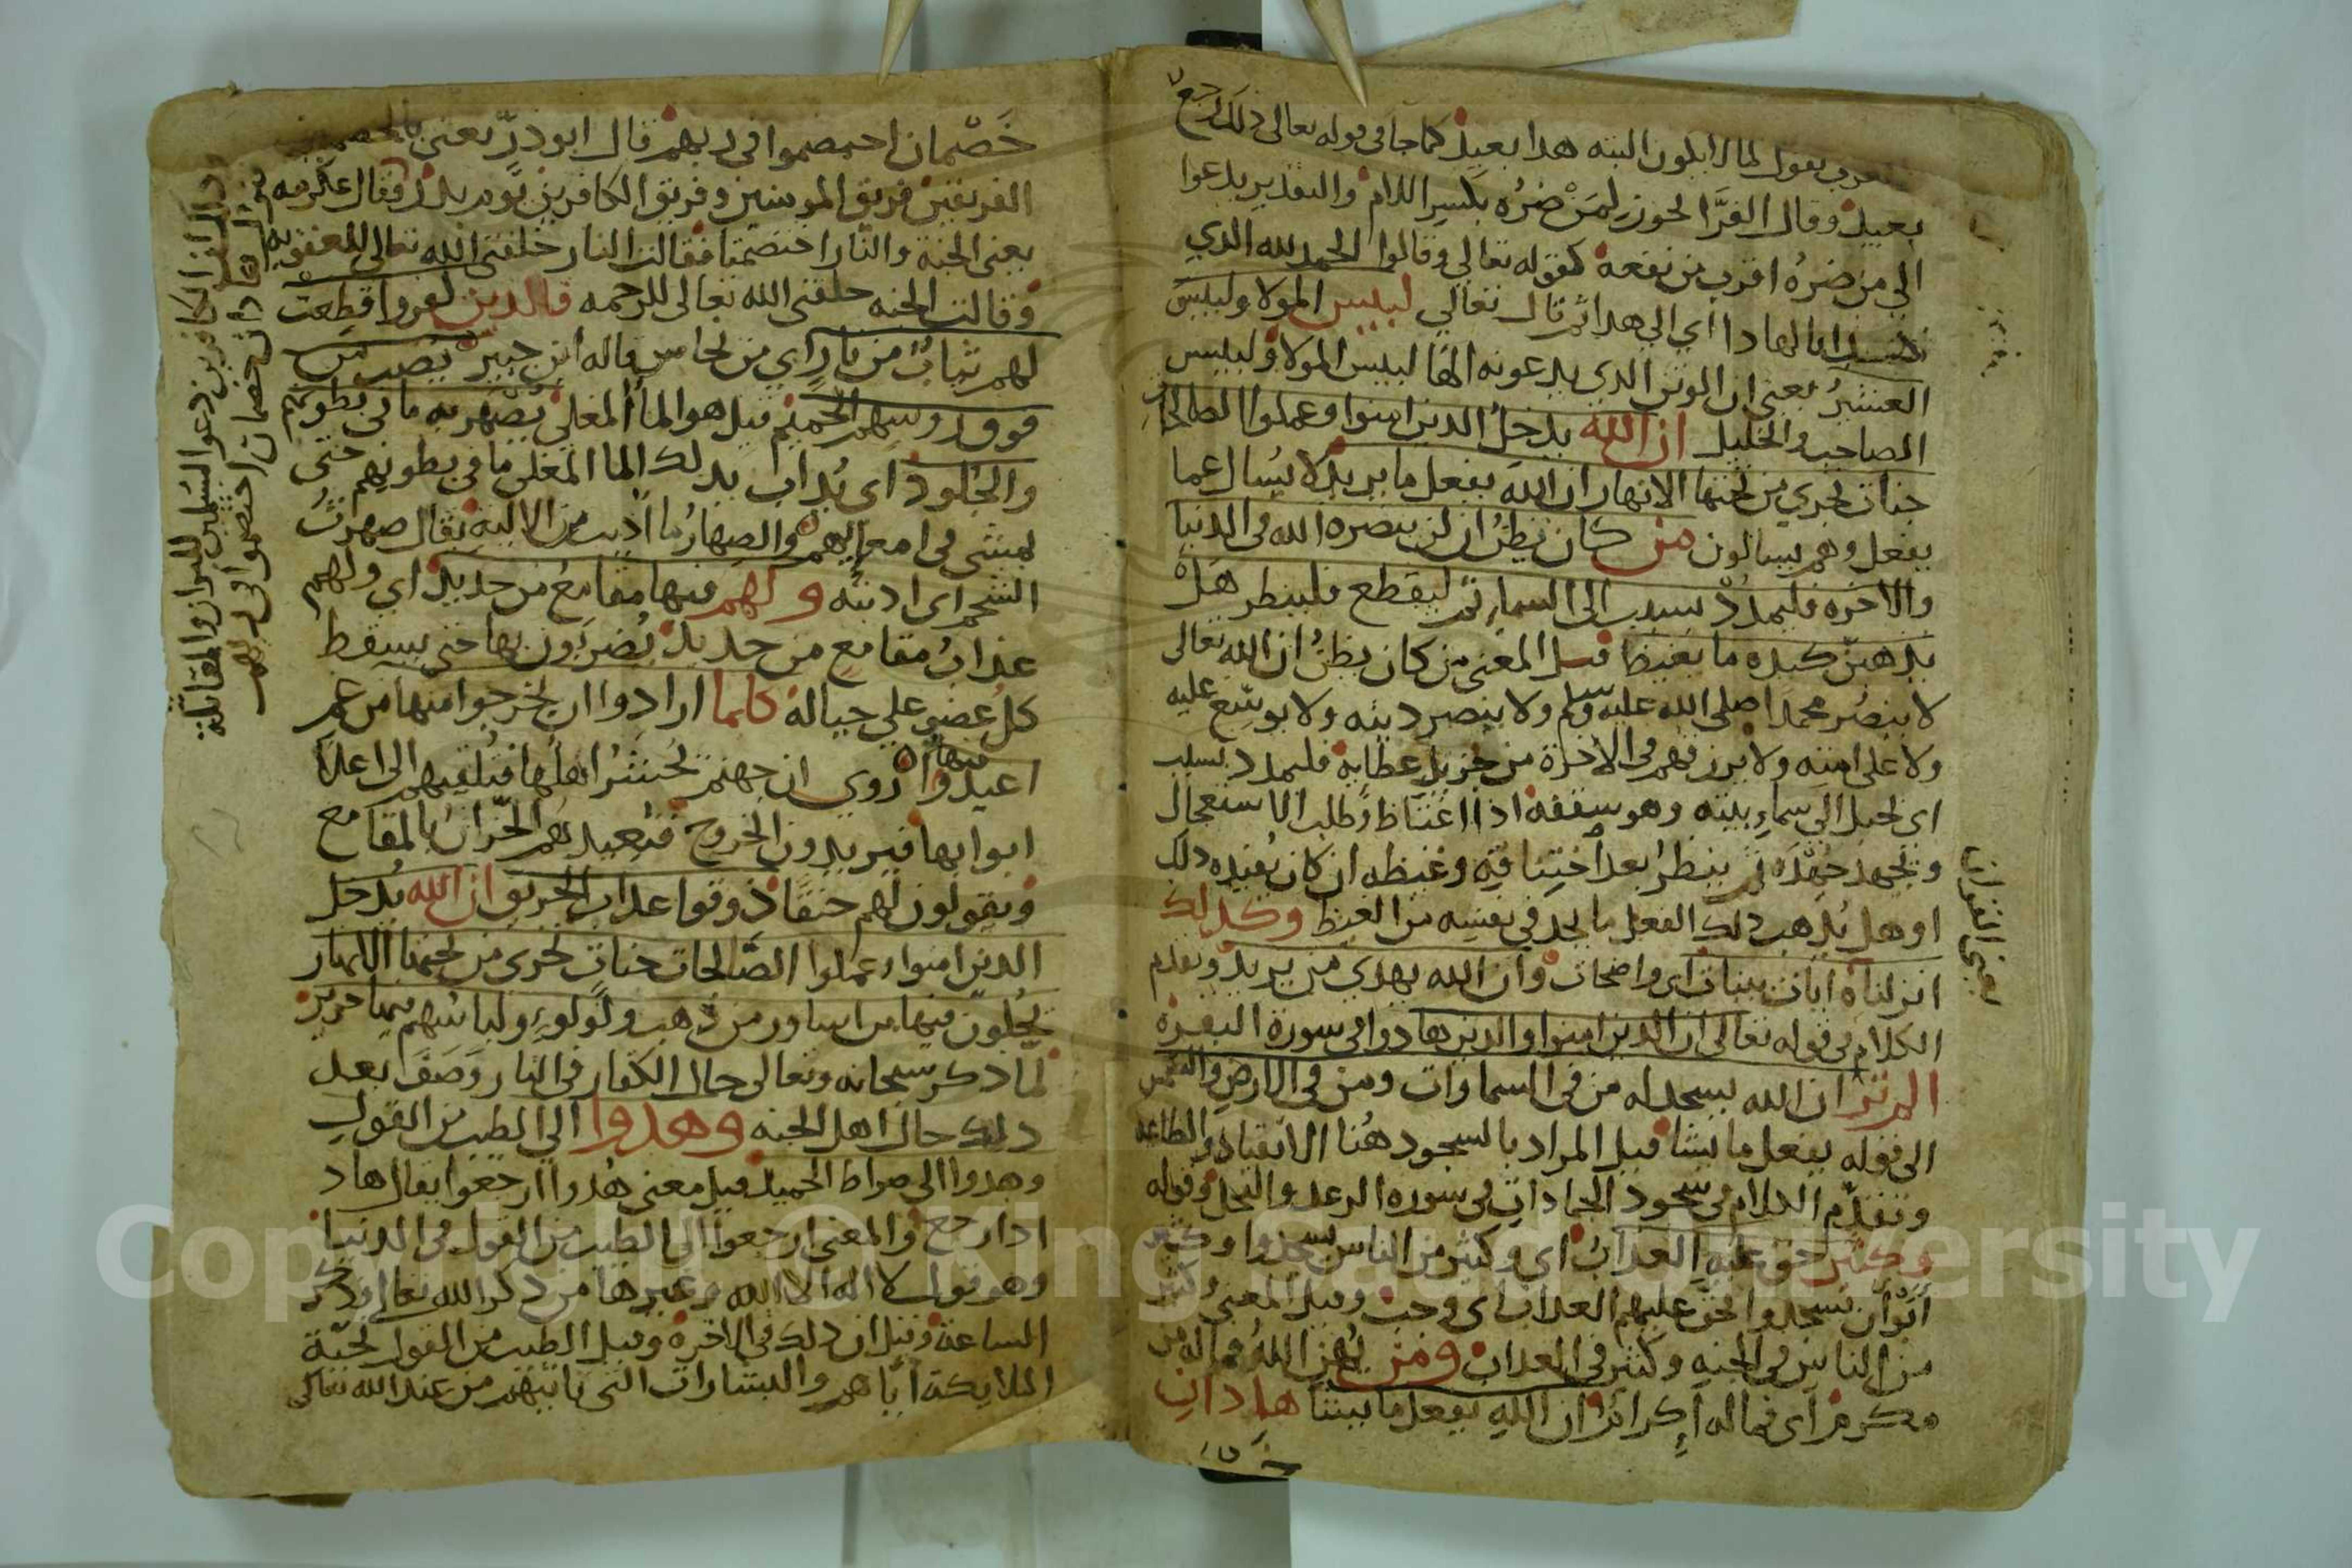 العرب تقول لما لا يكون البته هذا بعيد كما جا في قوله تعالى ذلك رجع
بعيد وقال الفرا يجوز لمن ضره بكسر اللام والتقدير يدعوا
الى من ضره اقرب من نفعه كقوله تعالى وقالوا الحمد لله الذي
هدانا لهاذا اي الى هذا ثم قال تعالى لبيس المولا ولبيس
العشير يعني ان الوثن الذي يدعونه الها لبيس المولا ولبيس
الصاحب والخليل ان الله يدخل الذين امنوا وعملوا الصالحات
جنات تجري من تحتها الانهار ان الله يفعل ما يريد لا يسال عما
يفعل وهم يسالون من كان يظن ان لن ينصره الله في الدنيا
والاخره فليمدد بسبب الى السماء ثم ليقطع فلينظر هل
يذهبن كيده ما يغيظ قيل المعنى من كان يظن ان الله تعالى
لا ينصر محمدا صلى الله عليه وسلم ولا ينصر دينه ولا يوسع عليه
ولا على امته ولا يرزقهم في الاخرة من جزيل عطايه فليمدد بسبب
اي بحبل الى سماء بيته وهو سقفه اذا اغتاظ لطلب الاستعجال
ويجهد جهده ثم ينظر بعد اختناقه وغيظه ان كان يفيده ذلك
او هل يذهب ذلك الفعل ما يجد في نفسه من الغيظ وكذلك
انزلناه ايات بينات اي واضحات وان الله يهدي من يريد وتقدم
الكلام في قوله تعالى ان الذين امنوا والذين هادوا في سورة البقرة
الم تر ان الله يسجد له من في السماوات ومن في الارض والشمس
الى قوله يفعل ما يشا قيل المراد بالسجود هنا الانقياد والطاعه
وتقدم الكلام في سجود الجمادات في سورة الرعد والنحل وقوله
وكثير حق عليه العذاب اي وكثير من الناس يسجدوا وكثير
ابوا ان يسجدوا فحق عليهم العذاب اي وجب وقيل المعنى وكثير
من الناس في الجنه وكثير في العذاب ومن يهن الله فما له من
مكرم اي فما له اكراما ان الله يفعل ما يشا هاذان
يعني القران
خصمان اختصموا في ربهم قال ابو ذر يعني بالخصمين
الفريقين فريق المومنين وفريق الكافرين يوم بدر وقال عكرمه
يعني الجنة والنار اختصمتا فقالت النار خلقني الله تعالى للعقوبه
وقالت الجنه خلقني الله تعالى للرحمه فالذين كفروا قطعت
لهم ثياب من نار اي من نحاس قاله ابن جبير يصب من
فوق روسهم الحميم قيل هو الما المغلي يصهر به ما في بطونهم
والجلود اي يذاب بذلك الما المغلي ما في بطونهم حتى
يمشي في امعايهم والصهار ما اذيب من الاليه يقال صهرت
الشحم اي اذبته ولهم فيها مقامع من حديد اي ولهم
عذاب مقامع من حديد يضربون بها حتى يسقط
كل عضو على حياله كلما ارادوا ان يخرجوا منها من غم
اعيدوا فيها روي ان جهنم اهلها فتلقيهم الى اعلا
ابوابها فيريدون الخروج فتعيدهم الخزان بالمقامع
ويقولون لهم ذوقوا عذاب الحريق ان الله يدخل
الذين امنوا وعملوا الصالحات جنات تجري من تحتها الانهار
يحلون فيها من اساور من ذهب ولولو ولباسهم فيها حرير
لما ذكر سبحانه وتعالى حال الكفار في النار وصف بعد
ذلك حال اهل الجنه وهدوا الى الطيب من القول
وهدوا الى صراط الحميد قيل معنى هدوا ارجعوا يقال هاد
اذا رجع والمعنى ارجعوا الى الطيب من القول في الدنيا
وهو قول لا اله الا الله وغيرها من ذكر الله تعالى وذكر
الساعة وقيل ان ذلك في الاخرة وقيل الطيب من القول تحية
الملايكة اياهم والبشارات التي تاتيهم من عند الله تعالى
الكافرين دعوا المسلمين للبراز والمقاتلة
هاذان خصمان اختصموا في ربهم
Copyright © King Saud University